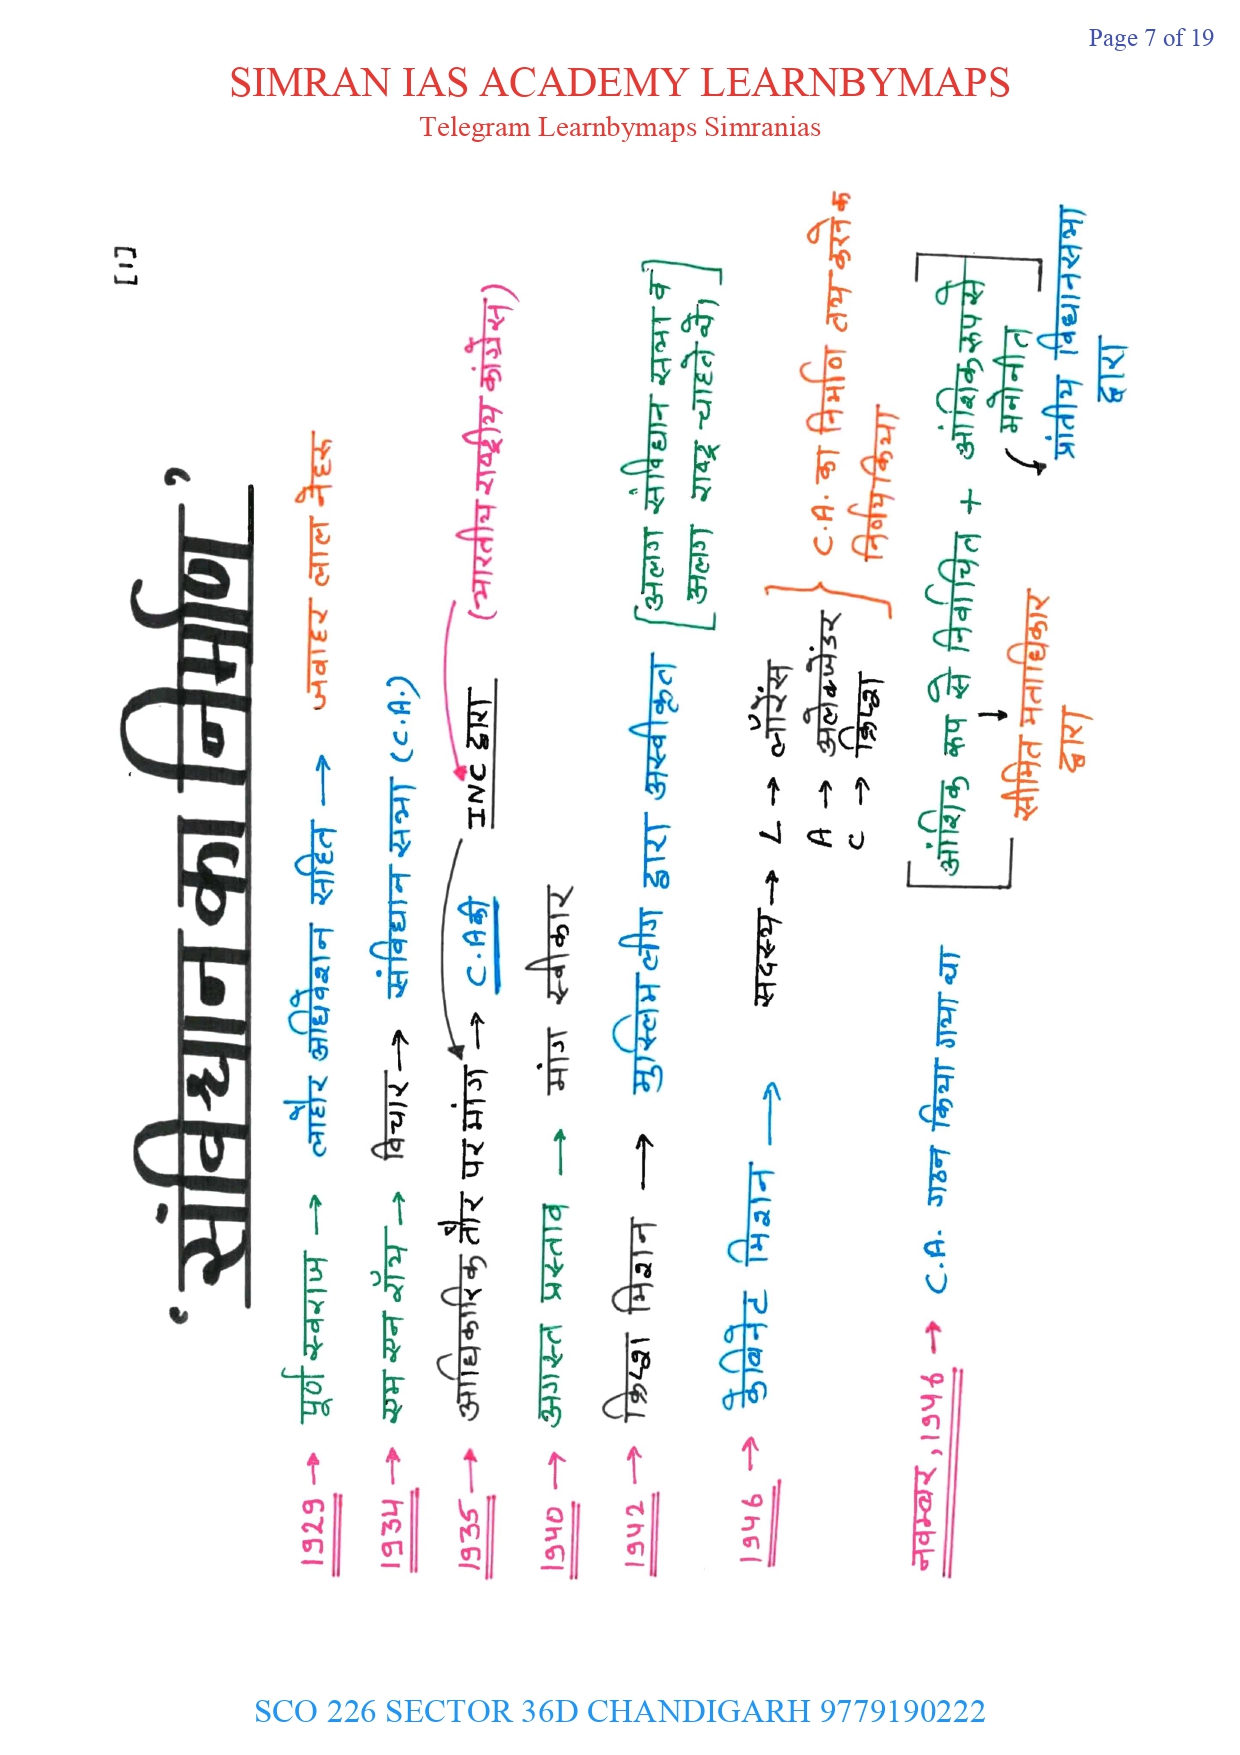 Page 7 of 19
SIMRAN IAS ACADEMY LEARNBYMAPS
Telegram Learnbymaps Simranias
[1]
‘संविधान का निर्माण’
1929 → पूर्ण स्वराज → लाहौर अधिवेशन सहित → जवाहर लाल नेहरू
1934 → एम एन रॉय → विचार → संविधान सभा (C.A.)
1935 → आधिकारिक तौर पर मांग → C.A की INC द्वारा (भारतीय राष्ट्रीय कांग्रेस)
1940 → अगस्त प्रस्ताव → मांग स्वीकार
1942 → क्रिप्श मिशन → मुस्लिम लीग द्वारा अस्वीकृत [अलग संविधान सभा व
अलग राष्ट्र चाहते थे।]
1946 → कैबिनेट मिशन → सदस्य → L → लॉरेंस
A → अलेक्जेंडर
C → क्रिप्श
} C.A. का निर्माण तय करने क
निर्णय किया
नवम्बर, 1946 → C.A. गठन किया गया था [आंशिक रूप से निर्वाचित + आंशिक रूप से
मनोनीत]
↓ सीमित मताधिकार
द्वारा
प्रांतीय विधानसभा
द्वारा
SCO 226 SECTOR 36D CHANDIGARH 9779190222